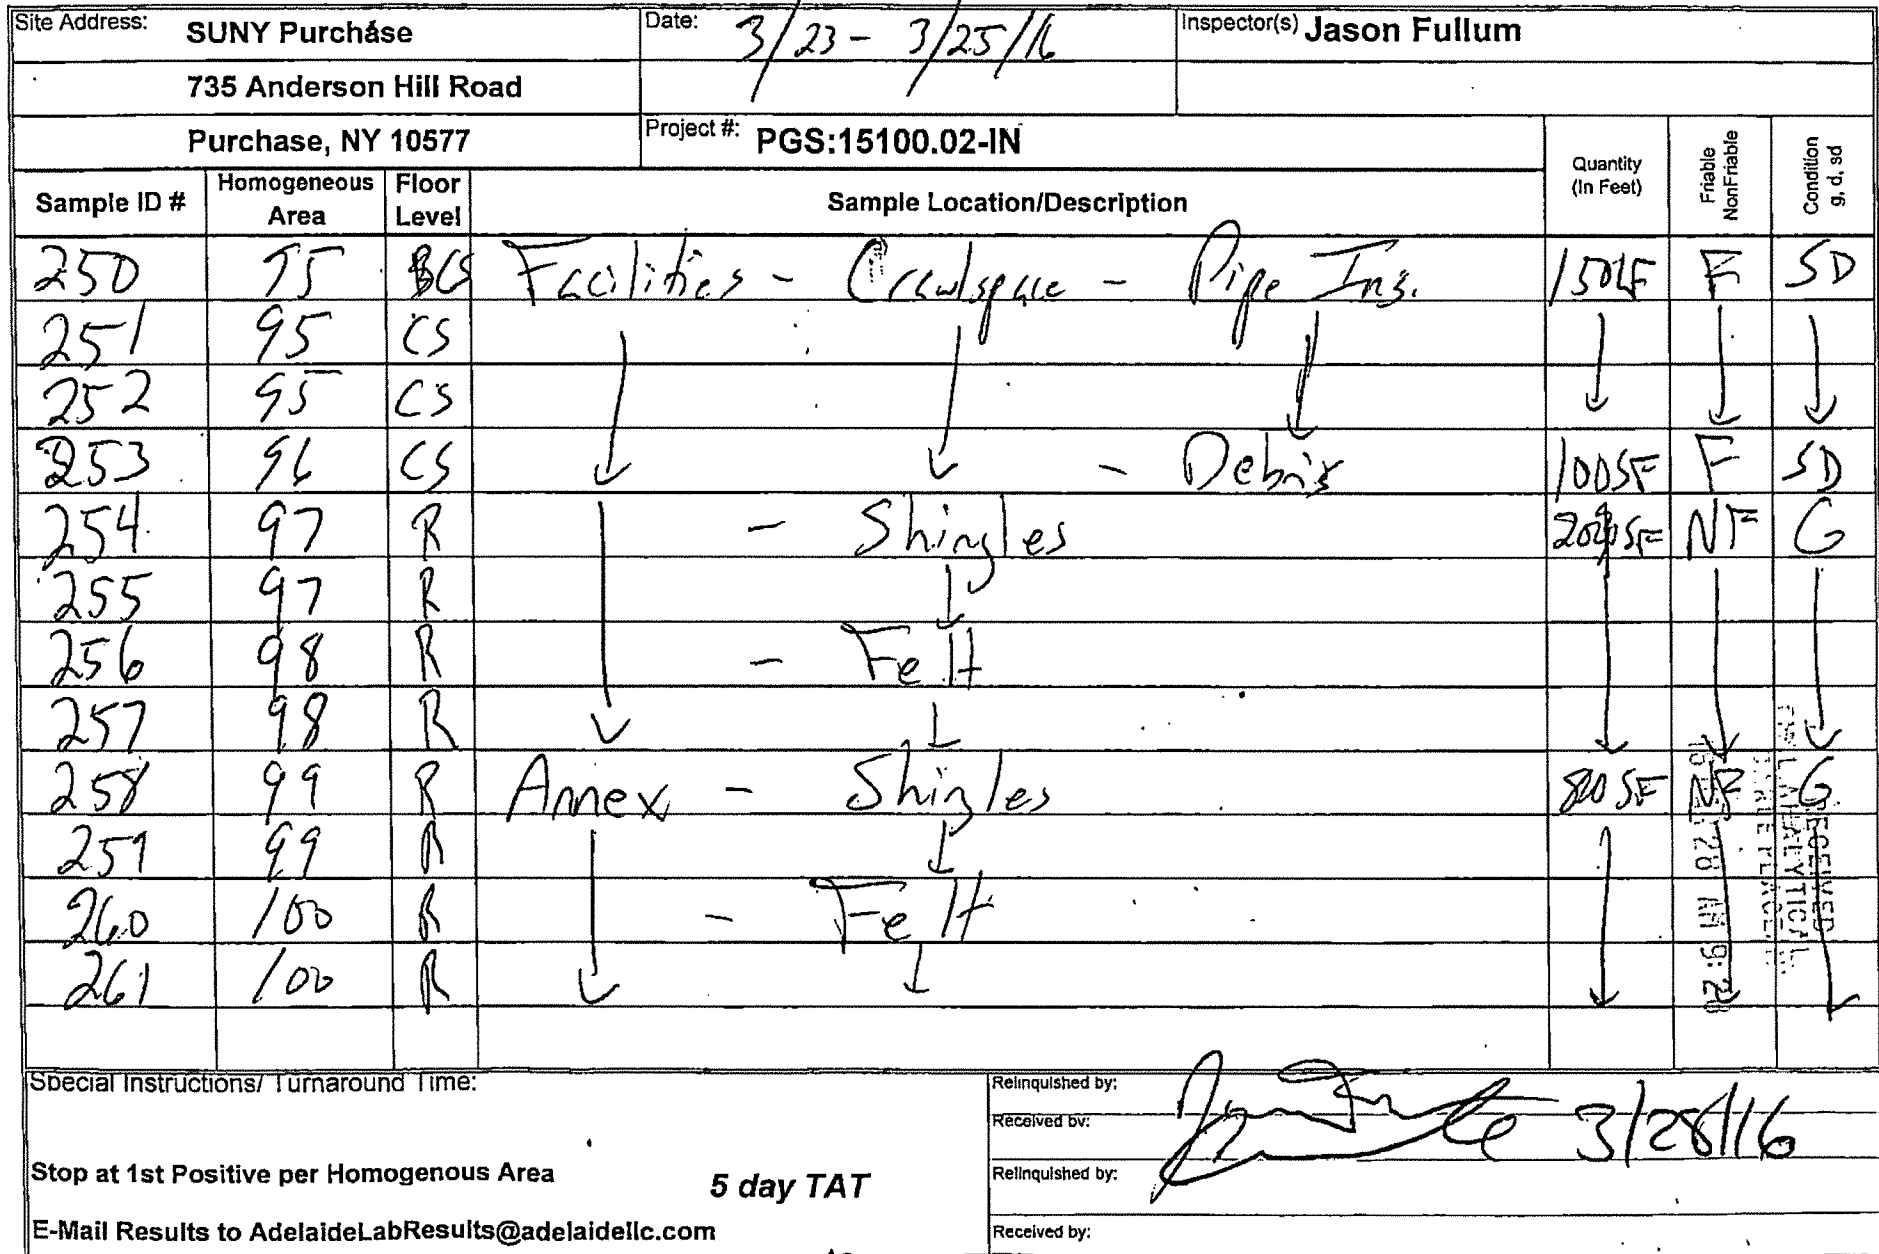 Site Address: SUNY Purchase Date: 3/23 - 3/25/16 Inspector(s) Jason Fullum
735 Anderson Hill Road
Purchase, NY 10577 Project #: PGS:15100.02-IN
Sample ID # Homogeneous Area Floor Level Sample Location/Description Quantity (In Feet) Friable NonFriable Condition g, d, sd
250 95 CS Facilities - Crawlspace - Pipe Ins. 150LF F SD
251 95 CS
252 95 CS
253 96 CS - Debris 100SF F SD
254 97 R - Shingles SF NF G
255 97 R
256 98 R - Felt
257 98 R
258 99 R Annex - Shingles 800SF NF G
259 99 R
260 100 R - Felt
261 100 R
RECEIVED
ANALYTICAL
28 AM 9:28
Special Instructions/ Turnaround Time:
Stop at 1st Positive per Homogenous Area 5 day TAT
E-Mail Results to AdelaideLabResults@adelaidellc.com
Relinquished by:
Received by: 3/28/16
Relinquished by:
Received by: